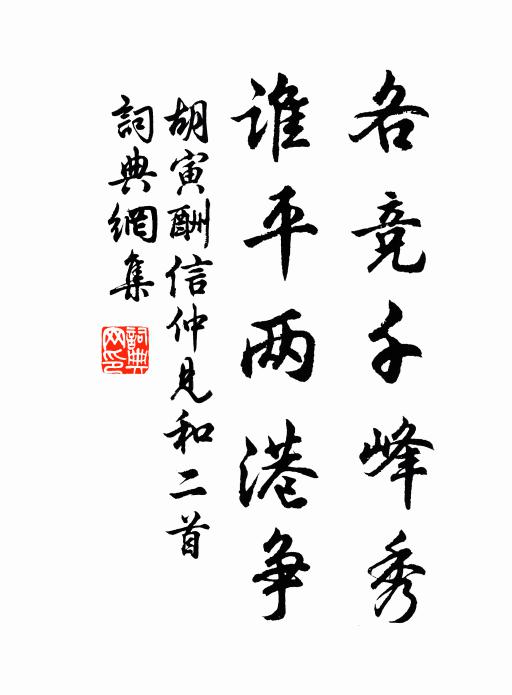 各竞千峰秀
谁平两港争
胡寅酬信仲见和二首
詞典網集
詞典网印